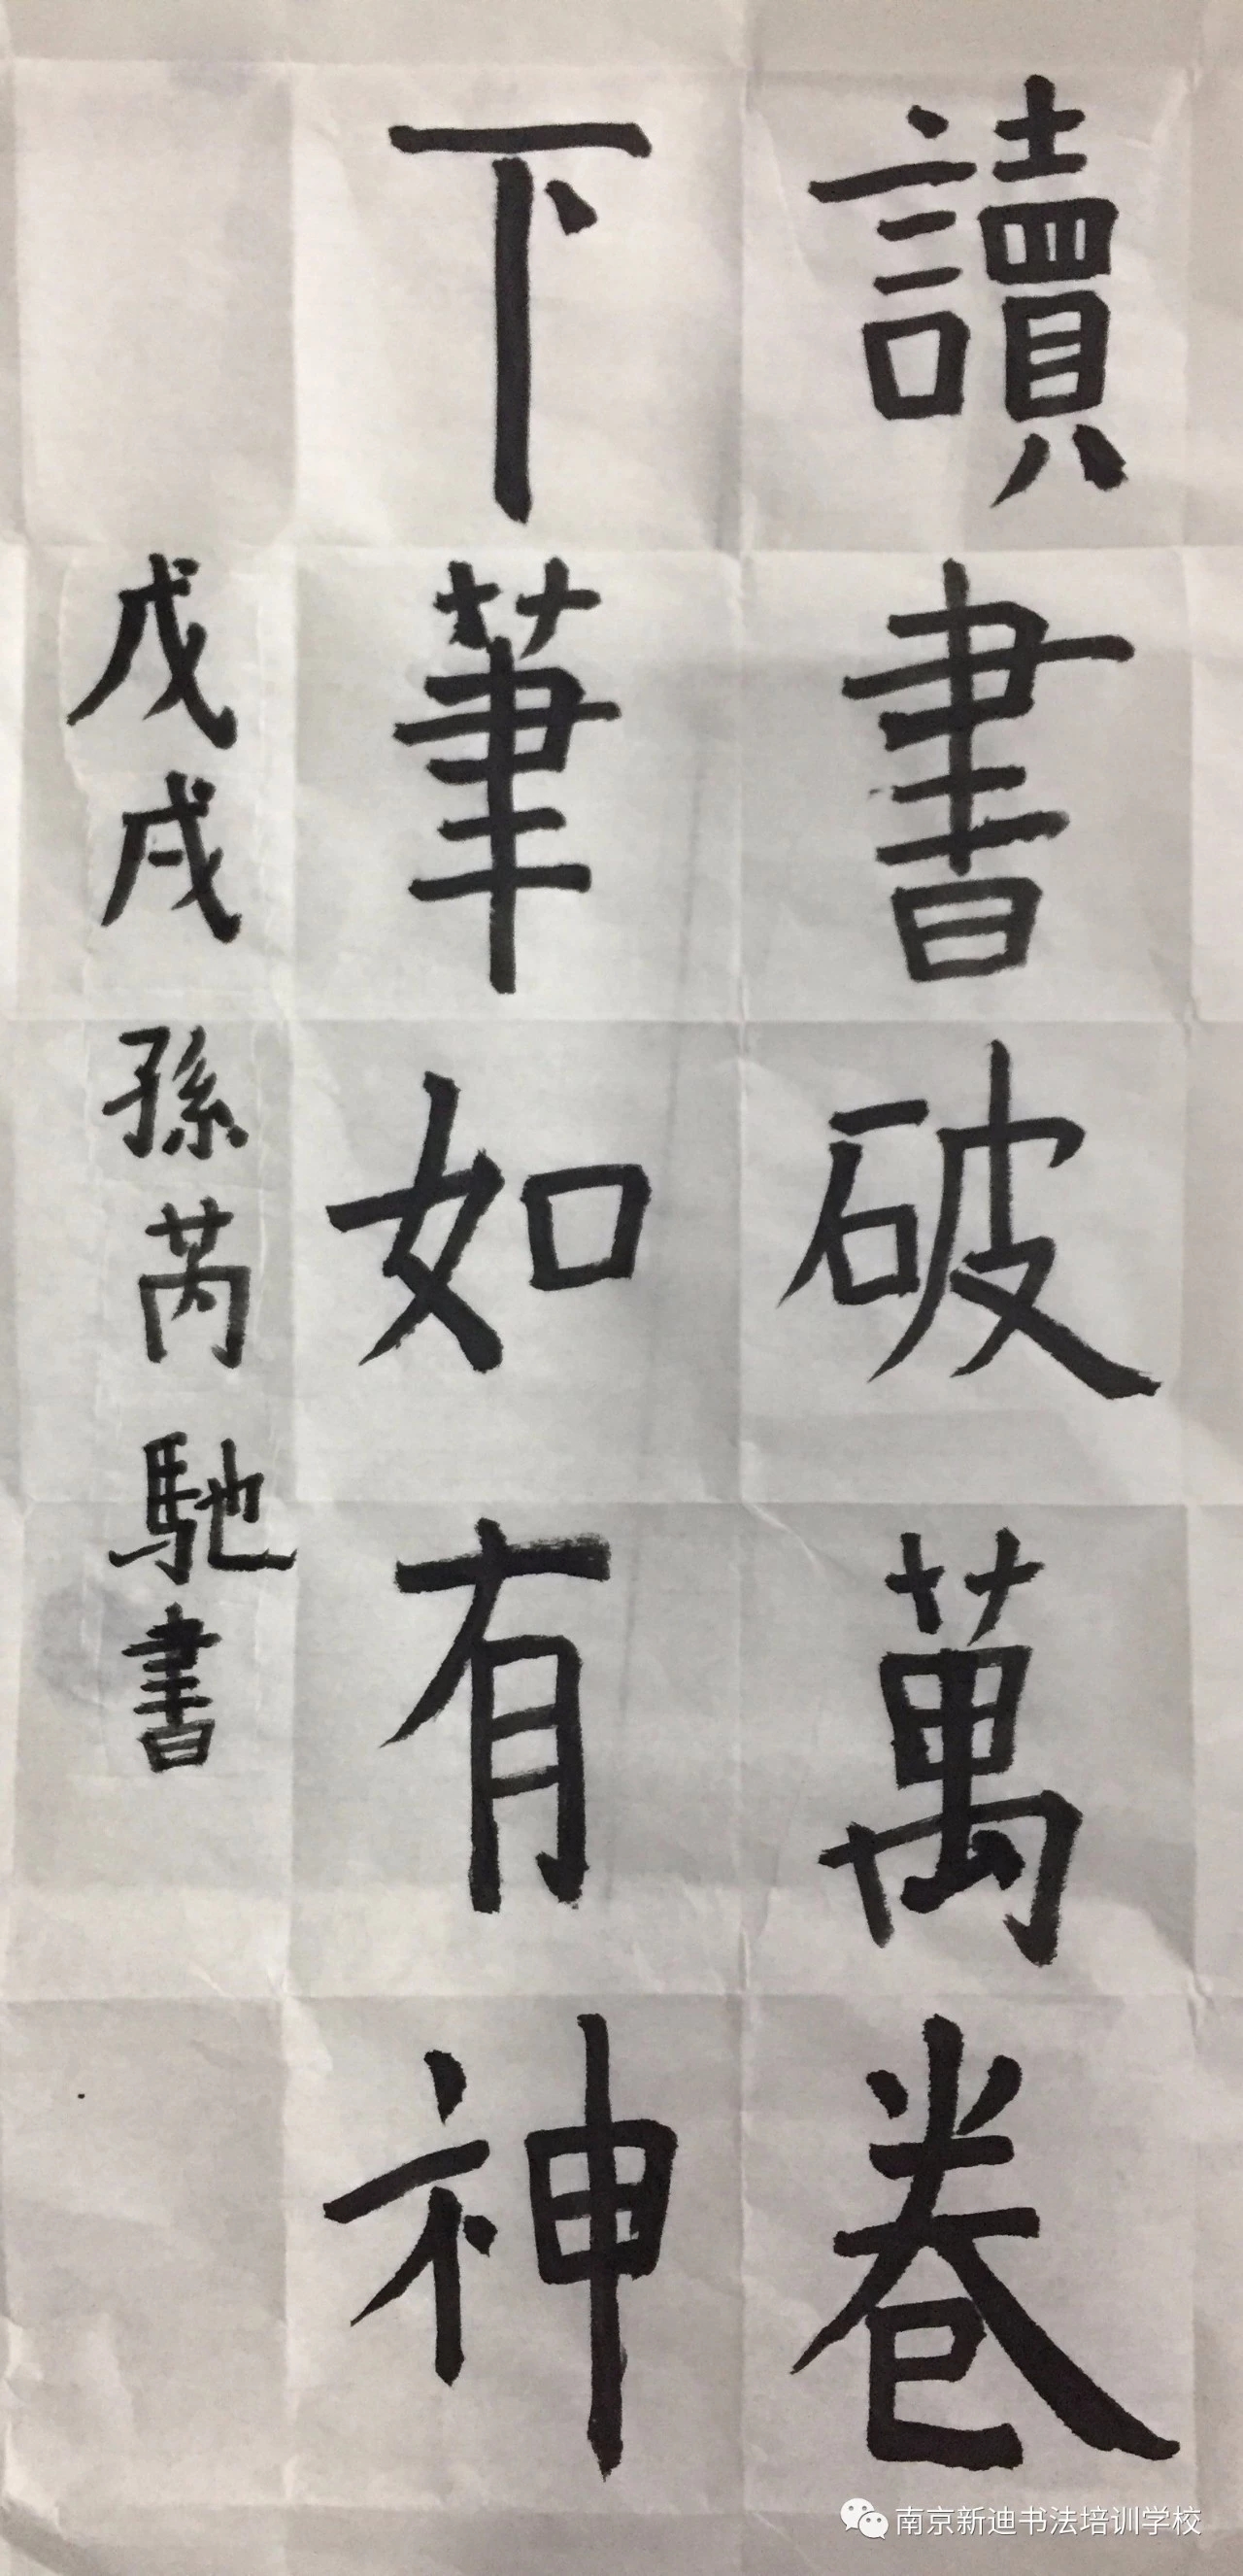 讀書破萬卷
下筆如有神
戊戌 孫芮馳書
南京新迪书法培训学校